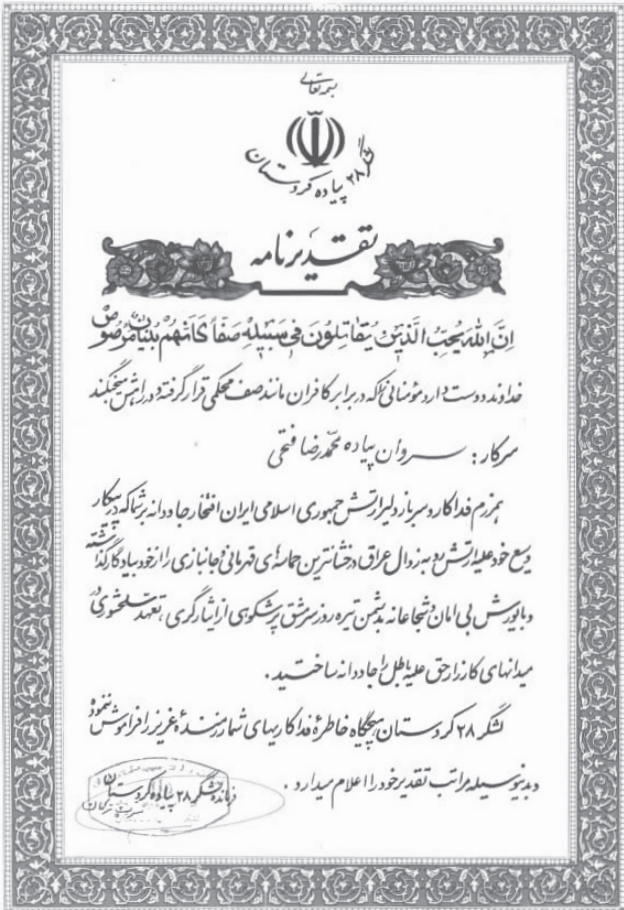 بسمه تعالی
لشگر ۲۸ پیاده کردستان
تقدیرنامه
اِنَّ اللهَ یُحِبُّ الَّذینَ یُقاتِلُونَ فی سَبیلِهِ صَفّاً کَاَنَّهُمْ بُنْیانٌ مَرْصُوصٌ
خداوند دوست دارد مؤمنانی را که در برابر کافران مانند صف محکمی قرار گرفته و در راهش میجنگند
سرکار : سروان پیاده محمّدرضا فتحی
همرزم فداکار و سرباز دلیر ارتش جمهوری اسلامی ایران افتخار جاودانه بر شما که در پیکار
وسیع خود علیه ارتش رو به زوال عراق درخشانترین حماسه‌های قهرمانی و جانبازی را از خود بیادگار گذاشته
و با یورش بی امان و شجاعانه بدشمن تیره روز سرمشق پرشکوهی از ایثارگری ، تعهد و سلحشوری در
میدانهای کارزار حق علیه باطل را جاودانه ساختید .
لشگر ۲۸ کردستان هیچگاه خاطرهٔ فداکاریهای شما رزمندهٔ عزیز را فراموش ننموده
و بدینوسیله مراتب تقدیر خود را اعلام میدارد .
فرمانده لشگر ۲۸ پیاده کردستان